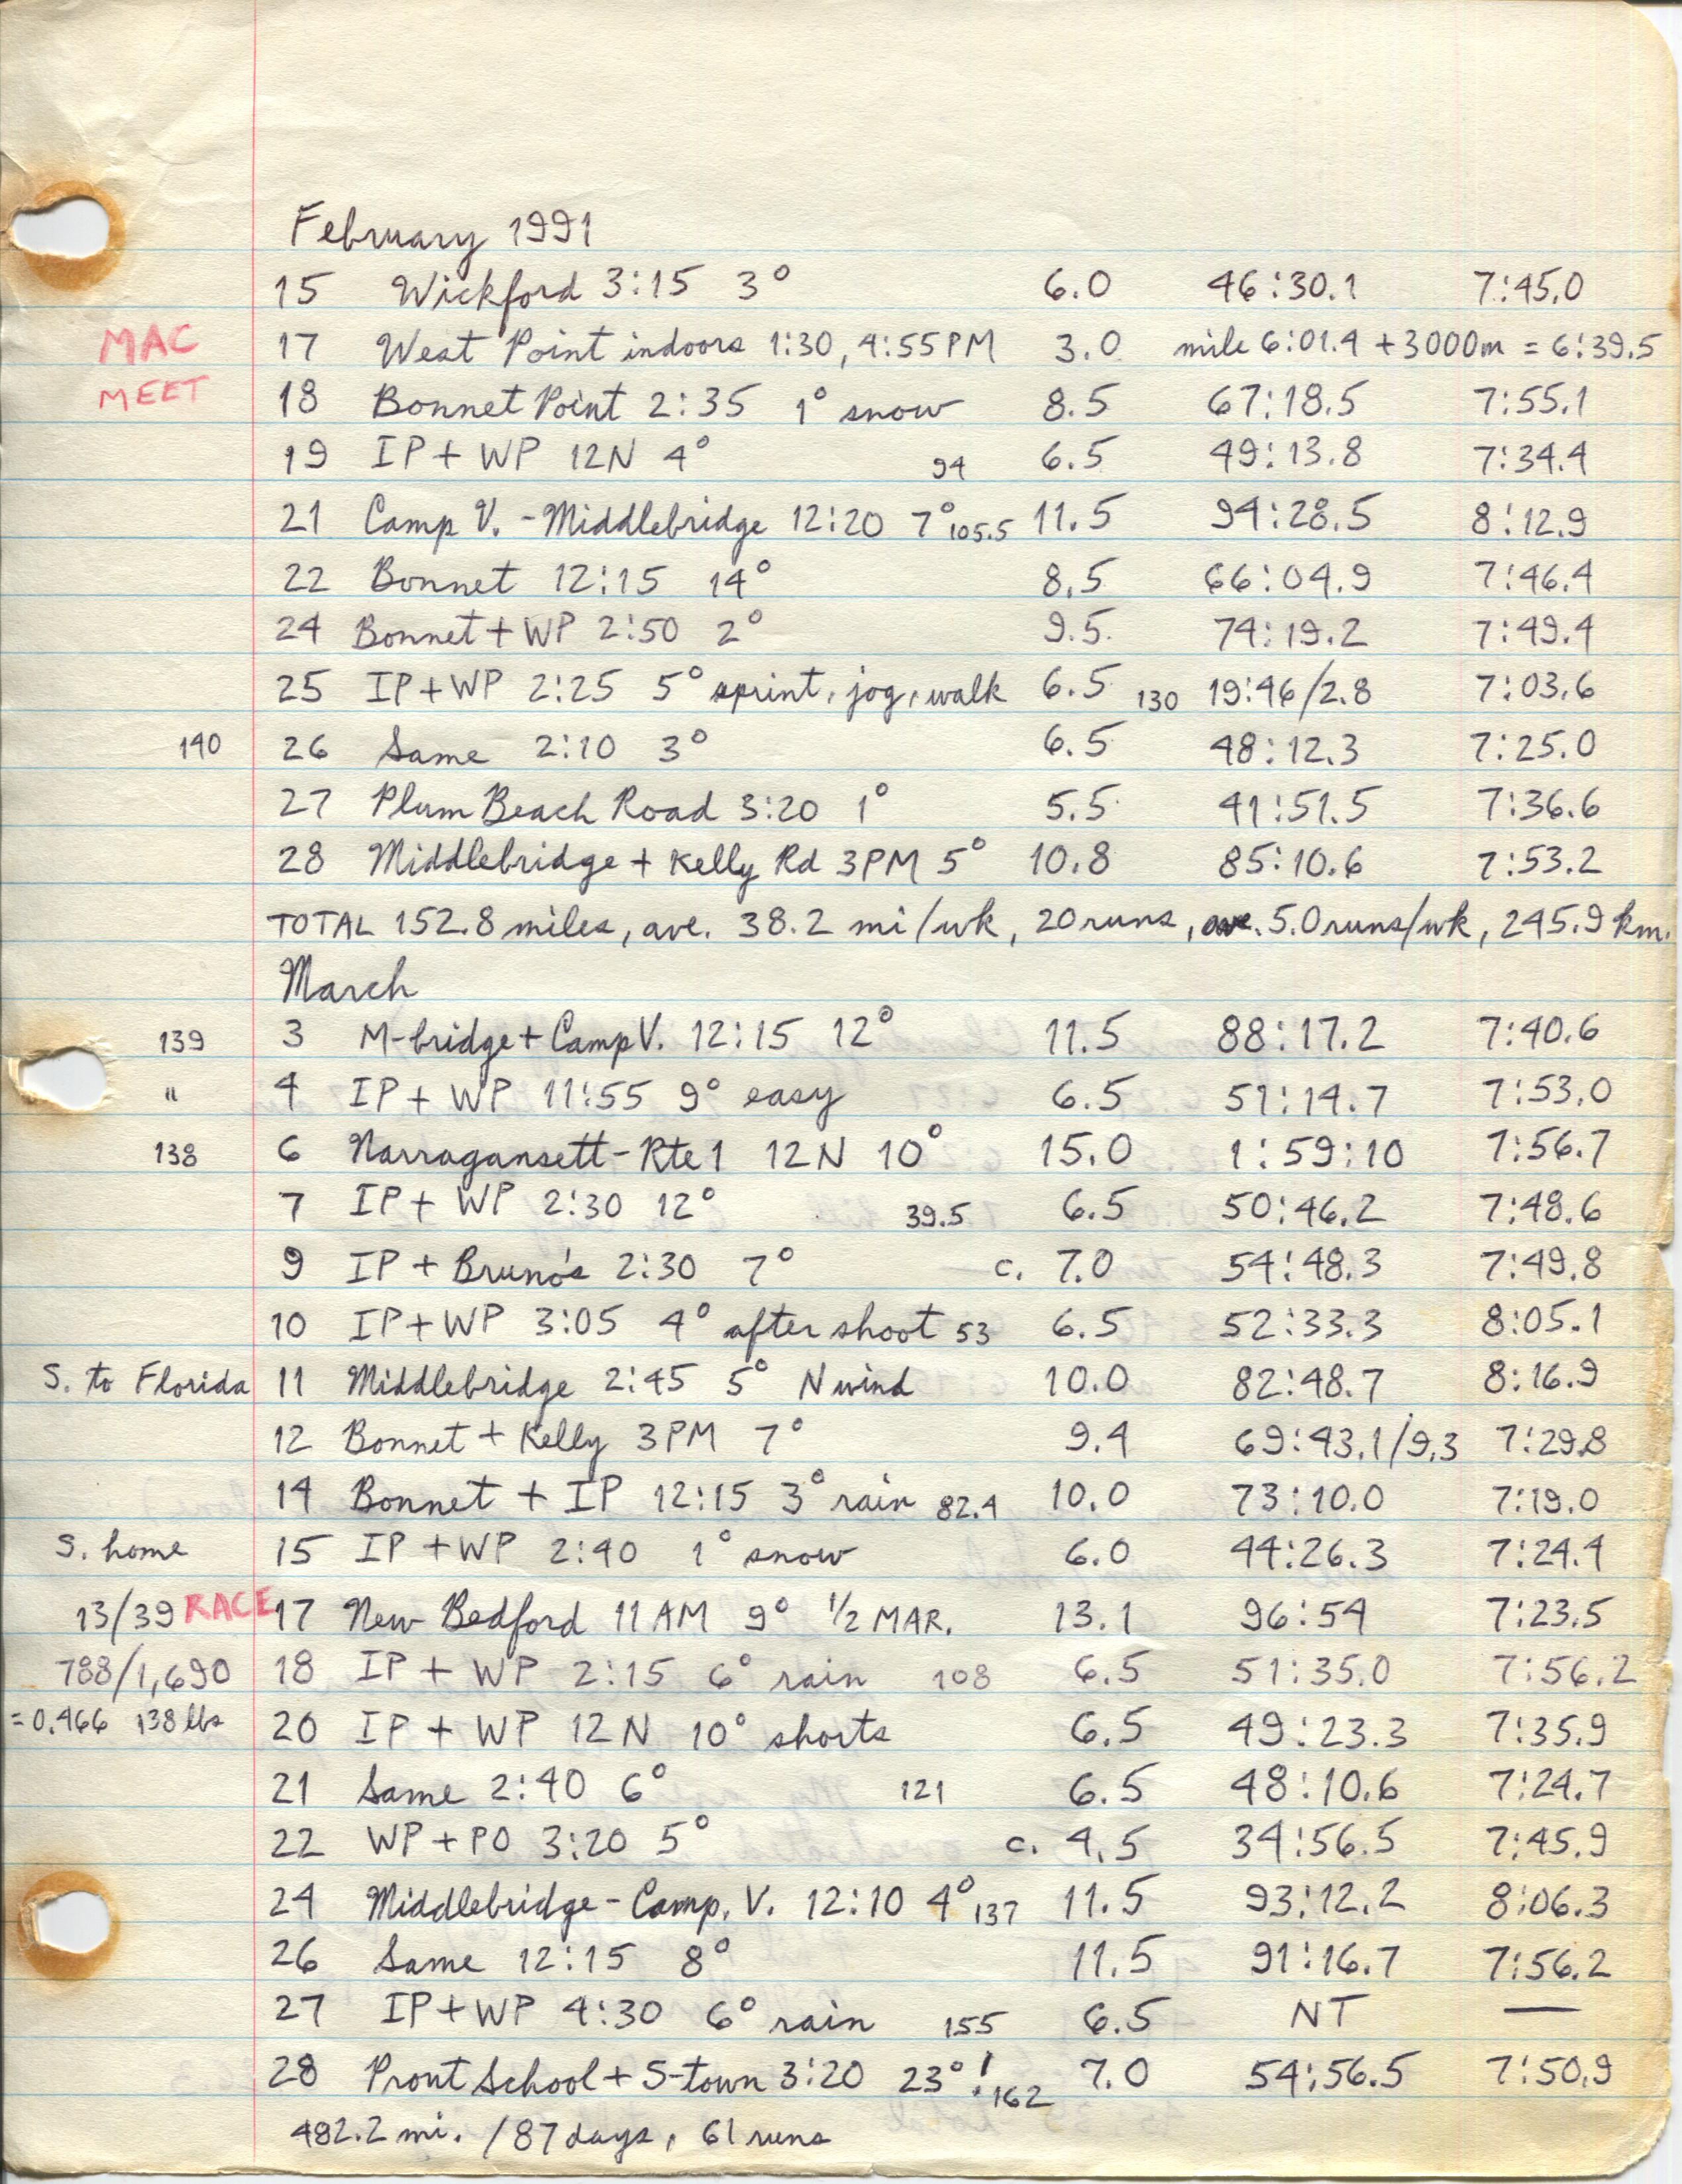 February 1991
15 Wickford 3:15 3° 6.0 46:30.1 7:45.0
MAC 17 West Point indoors 1:30, 4:55PM 3.0 mile 6:01.4 + 3000m = 6:39.5
MEET 18 Bonnet Point 2:35 1° snow 8.5 67:18.5 7:55.1
19 IP + WP 12N 4° 94 6.5 49:13.8 7:34.4
21 Camp V. - Middlebridge 12:20 7° 105.5 11.5 94:28.5 8:12.9
22 Bonnet 12:15 14° 8.5 66:04.9 7:46.4
24 Bonnet + WP 2:50 2° 9.5 74:19.2 7:49.4
25 IP + WP 2:25 5° sprint, jog, walk 6.5 130 19:46/2.8 7:03.6
140 26 Same 2:10 3° 6.5 48:12.3 7:25.0
27 Plum Beach Road 3:20 1° 5.5 41:51.5 7:36.6
28 Middlebridge + Kelly Rd 3PM 5° 10.8 85:10.6 7:53.2
TOTAL 152.8 miles, ave. 38.2 mi/wk, 20 runs, ave. 5.0 runs/wk, 245.9 km.
March
139 3 M-bridge + Camp V. 12:15 12° 11.5 88:17.2 7:40.6
" 4 IP + WP 11:55 9° easy 6.5 51:14.7 7:53.0
138 6 Narragansett - Rte 1 12N 10° 15.0 1:59:10 7:56.7
7 IP + WP 2:30 12° 39.5 6.5 50:46.2 7:48.6
9 IP + Bruno's 2:30 7° c. 7.0 54:48.3 7:49.8
10 IP + WP 3:05 4° after shoot 53 6.5 52:33.3 8:05.1
S. to Florida 11 Middlebridge 2:45 5° N wind 10.0 82:48.7 8:16.9
12 Bonnet + Kelly 3PM 7° 9.4 69:43.1/9.3 7:29.8
14 Bonnet + IP 12:15 3° rain 82.4 10.0 73:10.0 7:19.0
S. home 15 IP + WP 2:40 1° snow 6.0 44:26.3 7:24.4
13/39 RACE 17 New Bedford 11 AM 9° 1/2 MAR. 13.1 96:54 7:23.5
788/1,690 18 IP + WP 2:15 6° rain 108 6.5 51:35.0 7:56.2
= 0.466 138 lbs 20 IP + WP 12N 10° shorts 6.5 49:23.3 7:35.9
21 Same 2:40 6° 121 6.5 48:10.6 7:24.7
22 WP + PO 3:20 5° c. 4.5 34:56.5 7:45.9
24 Middlebridge - Camp. V. 12:10 4° 137 11.5 93:12.2 8:06.3
26 Same 12:15 8° 11.5 91:16.7 7:56.2
27 IP + WP 4:30 6° rain 155 6.5 NT —
28 Prout School + S-town 3:20 23°! 162 7.0 54:56.5 7:50.9
482.2 mi. / 87 days, 61 runs